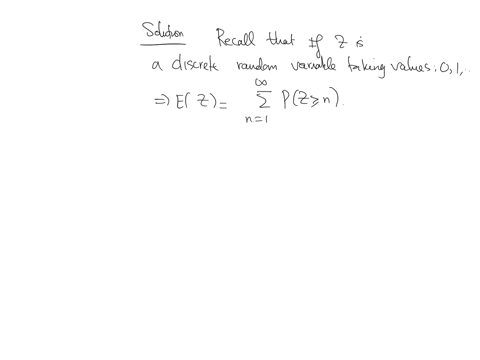 Solution Recall that if Z is
a discrete random variable taking values: 0, 1, ..
⇒ E(Z) = ∞∑n=1 P(Z ≥ n).